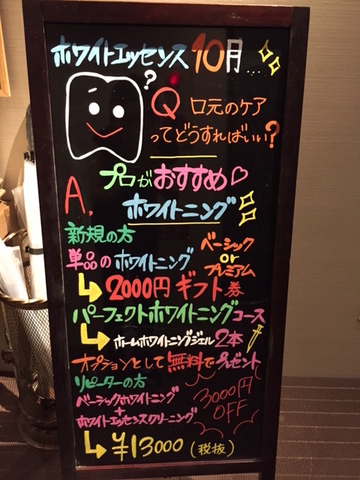 ホワイトエッセンス 10月...
?
Q 口元のケア
ってどうすればいい?
プロがおすすめ♡
A. ホワイトニング
新規の方
単品のホワイトニング ベーシック
or
プレミアム
↳ 2000円ギフト券
パーフェクトホワイトニングコース
↳ ホームホワイトニングジェル2本
オプションとして無料でプレゼント
リピーターの方
ベーシックホワイトニング
+
ホワイトエッセンスクリーニング
3000円
OFF
↳ ¥13000 (税抜)